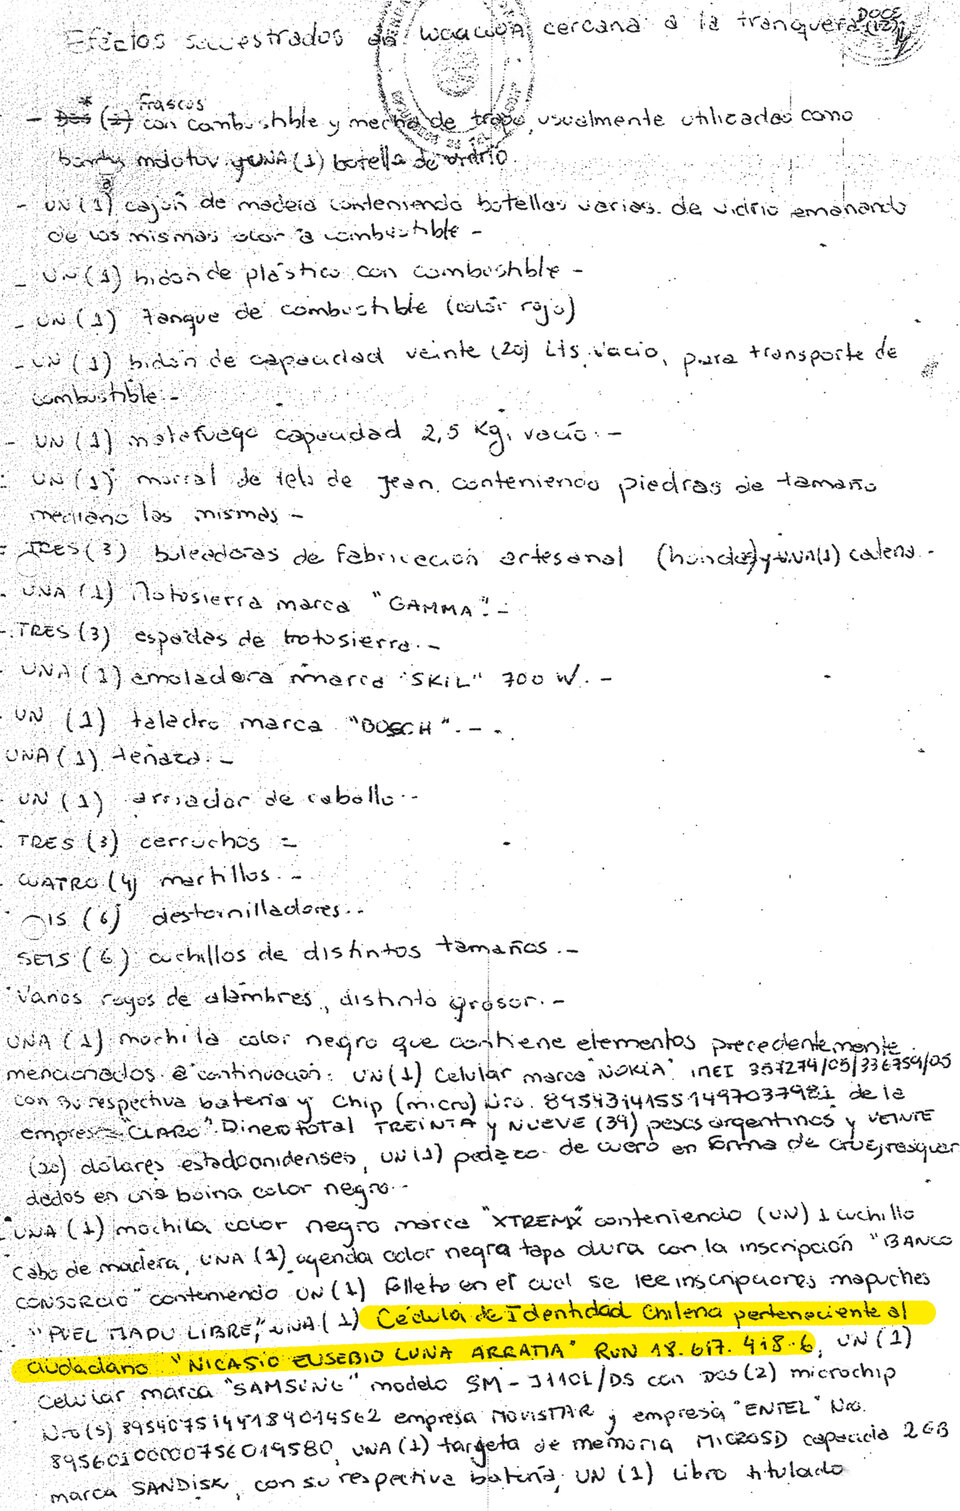 Efectos secuestrados de locación cercana a la tranquera
DOCE
(12)
* Frascos
- Dos (2) con combustible y mecha de trapo, usualmente utilizadas como
molotov y UNA (1) botella de vidrio.
- UN (1) cajón de madera conteniendo botellas varias de vidrio emanando
de las mismas olor a combustible -
- UN (1) bidon de plástico con combustible -
- UN (1) tanque de combustible (color rojo)
- UN (1) bidón de capacidad veinte (20) Lts vacio, para transporte de
combustible -
- UN (1) matafuego capacidad 2,5 Kg, vacío. -
- UN (1) morral de tela de jean conteniendo piedras de tamaño
mediano las mismas -
- TRES (3) boleadoras de fabricación artesanal (hondas) y UNA (1) cadena. -
- UNA (1) Motosierra marca "GAMMA". -
- TRES (3) espadas de motosierra. -
- UNA (1) amoladora marca "SKIL" 700 W. -
- UN (1) taladro marca "BOSCH". - -
UNA (1) tenaza. -
- UN (1) arriador de caballo. -
- TRES (3) cerruchos =
- CUATRO (4) martillos. -
IS (6) destornilladores. -
SEIS (6) cuchillos de distintos tamaños. -
Varios royos de alambres, distinto grosor. -
UNA (1) mochila color negro que contiene elementos precedentemente
mencionados a continuación: UN (1) Celular marca "NOKIA" IMEI 357274/05/336759/05
con su respectiva batería y Chip (micro) Nro. de la
empresa "CLARO". Dinero total TREINTA y NUEVE (39) pesos argentinos y VEINTE
(20) dolares estadounidenses, UN (1) pedazo de cuero en forma de
dedos en una boina color negro. -
- UNA (1) mochila color negro marca "XTREMX" conteniendo (UN) 1 cuchillo
Cabo de madera, UNA (1) agenda color negra tapa dura con la inscripción "BANCO
CONSORCIO" conteniendo UN (1) folleto en el cual se lee inscripciones mapuches
"PUEL MAPU LIBRE", UNA (1) Cédula de Identidad Chilena perteneciente al
ciudadano "NICASIO EUSEBIO LUNA ARRATIA" RUN 18.617.418-6, UN (1)
Celular marca "SAMSUNG" modelo SM-J110L/DS con Dos (2) microchip
Nro (s) 8954075144189014562 empresa MOVISTAR y empresa "ENTEL" Nro.
8956010000756019580, UNA (1) targeta de memoria MICROSD capacida 2GB
marca SANDISK, con su respectiva batería, UN (1) Libro titulado